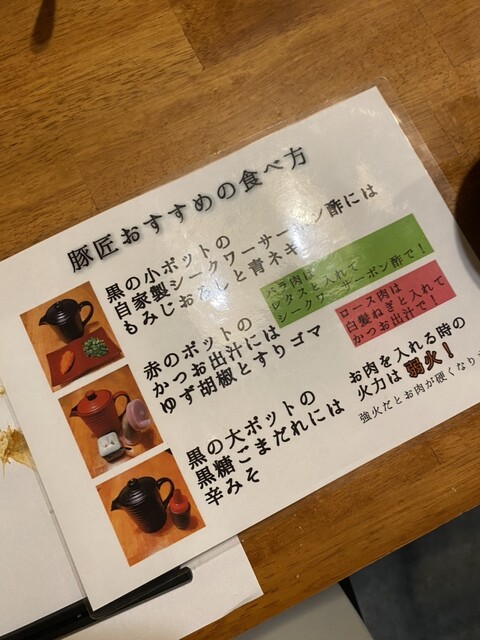 豚匠おすすめの食べ方
黒の小ポットの
自家製シークワーサーポン酢には
もみじおろしと青ネギ
バラ肉は
レタスと入れて
シークワーサーポン酢で！
赤のポットの
かつお出汁には
ゆず胡椒とすりゴマ
ロース肉は
白髪ねぎと入れて
かつお出汁で！
黒の大ポットの
黒糖ごまだれには
辛みそ
お肉を入れる時の
火力は 弱火！
強火だとお肉が硬くなり